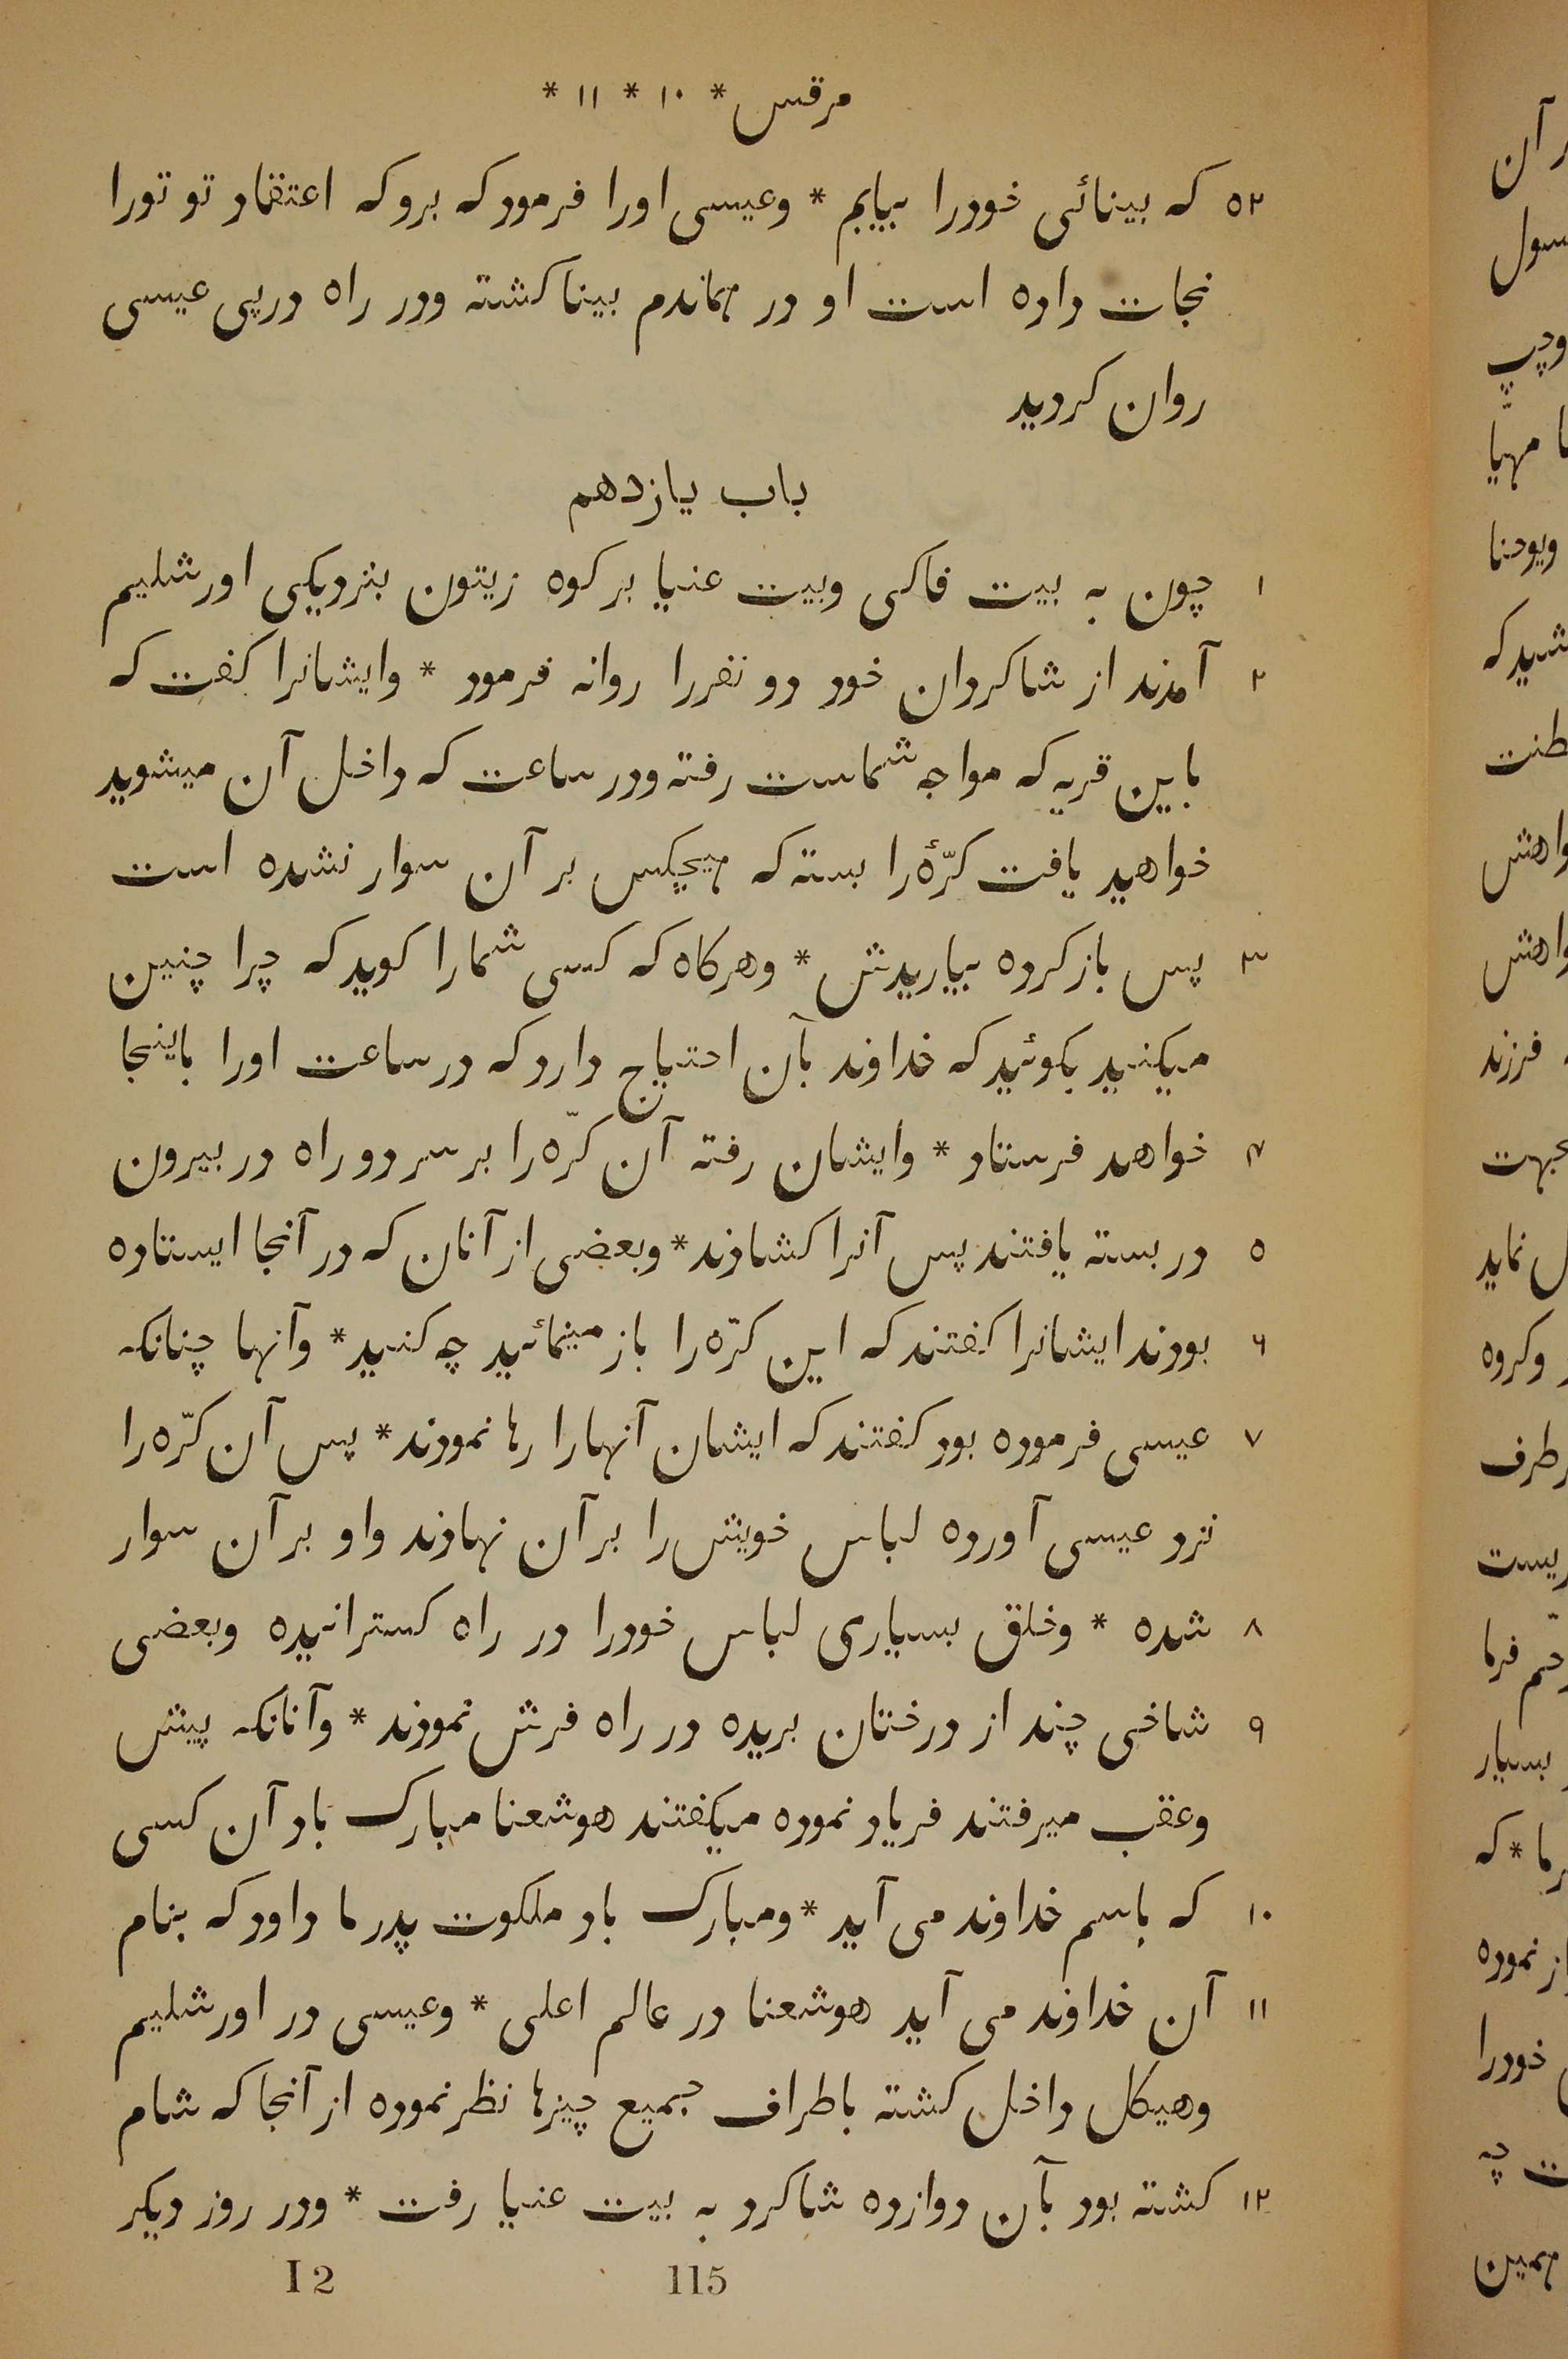 مرقس * ۱۰ * ۱۱ *
۵۲ که بینائی خودرا بیابم * وعیسی اورا فرمود که برو که اعتقاد تو تورا
نجات داده است او در هماندم بینا کشته ودر راه درپی عیسی
روان کردید
باب یازدهم
۱ چون به بیت فاکی وبیت عنیا بر کوه زیتون بنزدیکی اورشلیم
۲ آمدند از شاکردان خود دو نفررا روانه فرمود * وایشانرا کفت که
باین قریه که مواجه شماست رفته ودر ساعت که داخل آن میشوید
خواهید یافت کرّهٔ را بسته که هیچکس بر آن سوار نشده است
۳ پس باز کرده بیاریدش * وهرکاه که کسی شمارا کوید که چرا چنین
میکنید بکوئید که خداوند بآن احتیاج دارد که در ساعت اورا باینجا
۴ خواهد فرستاد * وایشان رفته آن کرّه را بر سر دو راه در بیرون
۵ در بسته یافتند پس آنرا کشادند * وبعضی از آنان که در آنجا ایستاده
۶ بودند ایشانرا کفتند که این کرّه را باز مینمائید چه کنید * وآنها چنانکه
۷ عیسی فرموده بود کفتند که ایشان آنهارا رها نمودند * پس آن کرّه را
نزد عیسی آورده لباس خویش را بر آن نهادند واو بر آن سوار
۸ شده * وخلق بسیاری لباس خودرا در راه کسترانیده وبعضی
۹ شاخی چند از درختان بریده در راه فرش نمودند * وآنانکه پیش
وعقب میرفتند فریاد نموده میکفتند هوشعنا مبارک باد آن کسی
۱۰ که باسم خداوند می آید * ومبارک باد ملکوت پدر ما داود که بنام
۱۱ آن خداوند می آید هوشعنا در عالم اعلی * وعیسی در اورشلیم
وهیکل داخل کشته باطراف جمیع چیزها نظر نموده از آنجا که شام
۱۲ کشته بود بآن دوازده شاکرد به بیت عنیا رفت * ودر روز دیکر
115 I 2